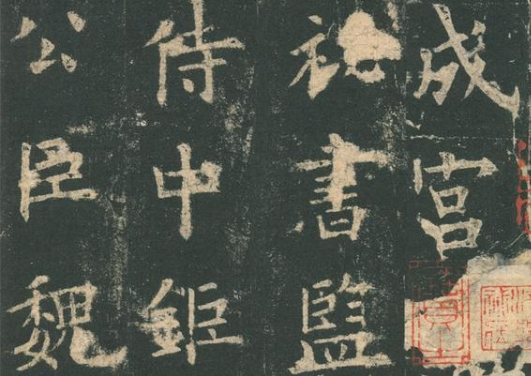 成宮
祕書監
侍中鉅
公臣魏